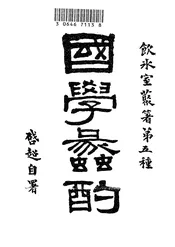 3 0646 7113 8
飲冰室叢箸第五種
國學蠡酌
啓超自署